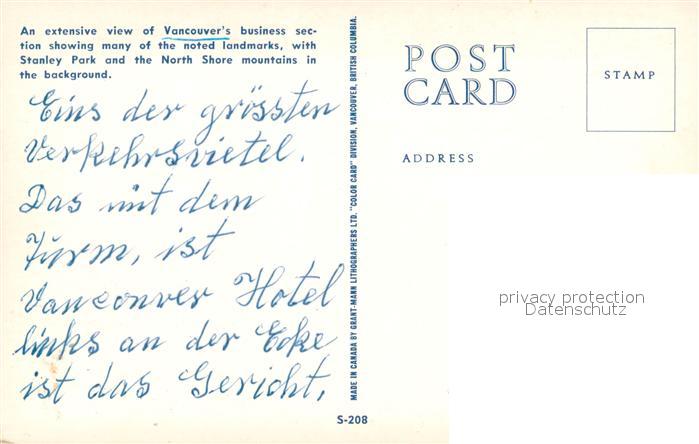 An extensive view of Vancouver's business sec-
tion showing many of the noted landmarks, with
Stanley Park and the North Shore mountains in
the background.
Eins der grössten
Verkehrsvietel.
Das mit dem
Turm, ist
Vanconver Hotel
links an der Ecke
ist das Gericht,
MADE IN CANADA BY GRANT-MANN LITHOGRAPHERS LTD. "COLOR CARD" DIVISION, VANCOUVER, BRITISH COLUMBIA.
S-208
POST
CARD
ADDRESS
STAMP
privacy protection
Datenschutz